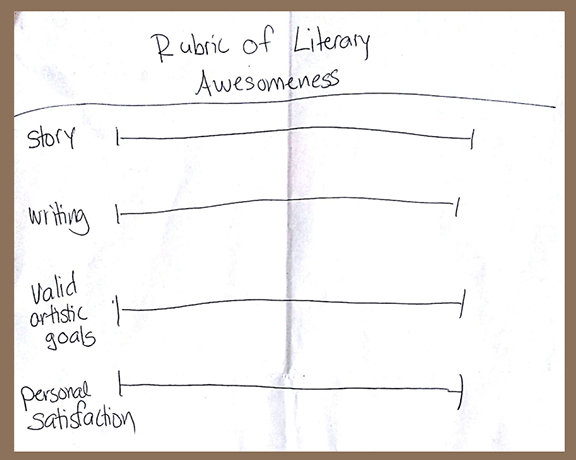 Rubric of Literary
Awesomeness
story
writing
Valid
artistic
goals
personal
satisfaction